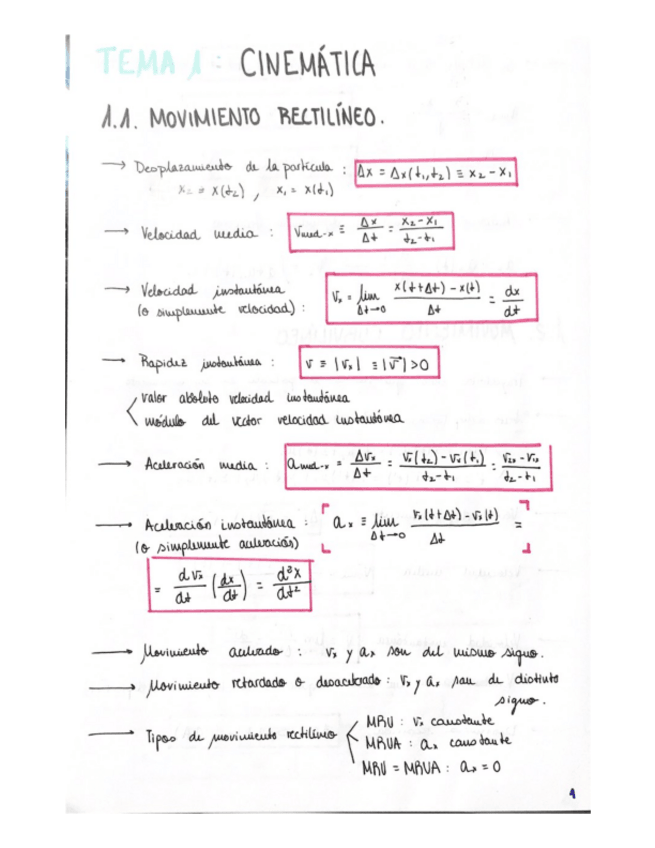 TEMA 1: CINEMÁTICA
1.1. MOVIMIENTO RECTILÍNEO.
→ Desplazamiento de la partícula : Δx = Δx(t₁,t₂) ≡ x₂ - x₁
x₂ = x(t₂) , x₁ = x(t₁)
→ Velocidad media : vmed-x ≡ Δx/Δt = (x₂ - x₁)/(t₂ - t₁)
→ Velocidad instantánea
(o simplemente velocidad) : vₓ = lim Δt→0 (x(t+Δt) - x(t))/Δt = dx/dt
→ Rapidez instantánea : v ≡ |vₓ| ≡ |v⃗| > 0
valor absoluto velocidad instantánea
módulo del vector velocidad instantánea
→ Aceleración media : amed-x = Δvₓ/Δt = (vₓ(t₂) - vₓ(t₁))/(t₂ - t₁) = (v₂ₓ - v₁ₓ)/(t₂ - t₁)
→ Aceleración instantánea : aₓ ≡ lim Δt→0 (vₓ(t+Δt) - vₓ(t))/Δt =
(o simplemente aceleración)
= dvₓ/dt (dx/dt) = d²x/dt²
→ Movimiento acelerado : vₓ y aₓ son del mismo signo.
→ Movimiento retardado o desacelerado : vₓ y aₓ son de distinto
signo.
→ Tipos de movimiento rectilíneo
MRU : vₓ constante
MRUA : aₓ constante
MRU = MRUA : aₓ = 0
1